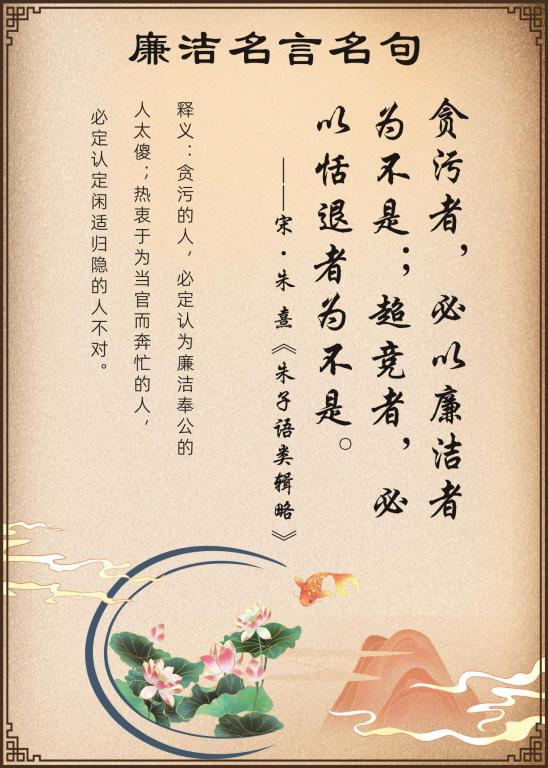 廉洁名言名句
贪污者，必以廉洁者
为不是；超竞者，必
以恬退者为不是。
——宋·朱熹《朱子语类辑略》
释义：贪污的人，必定认为廉洁奉公的
人太傻；热衷于为当官而奔忙的人，
必定认定闲适归隐的人不对。